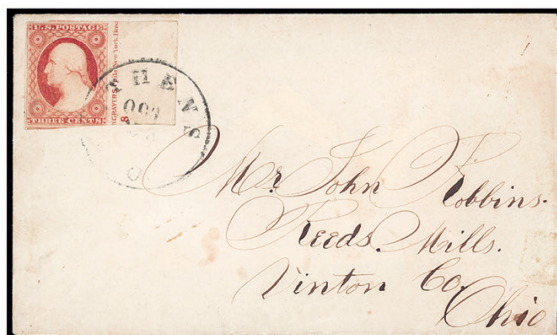 U.S. POSTAGE
THREE CENTS
8
ATHENS
OCT
O
Mr. John Robbins.
Reeds. Mills.
Vinton Co
Ohio